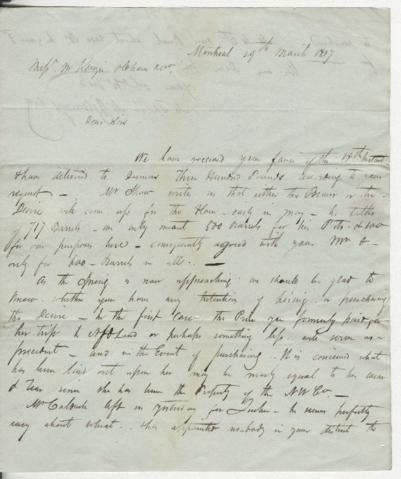 Montreal 29th March 1807
Messrs McKenzie Oldham &co.
Dear Sirs
We have received your favor of the 19th Instant
& have delivered to Dumas Three Hundred Pounds according to your
request — Mr Shaw writes us that either the Beaver or the
Desire will come up for the Flour — early in May — he talks
of 717 Barrels — we only want 500 Barrels for the
for our purposes here — consequently agreed with your Mr O-
only for Barrels in all. —
As the Spring is now approaching we should be glad to
know whether you have any Intention of hiring or purchasing
the Desire — In the first Case the Price you formerly paid for
her trips to Nfdland or perhaps something less will serve as
president — and in the Event of purchasing. It is conceived what
has been laid out upon her may be nearly equal to her wear
& tear since she has been the Property of the NW Co. —
Mr left us yesterday for — he seems perfectly
easy about what appointed nobody in your district to